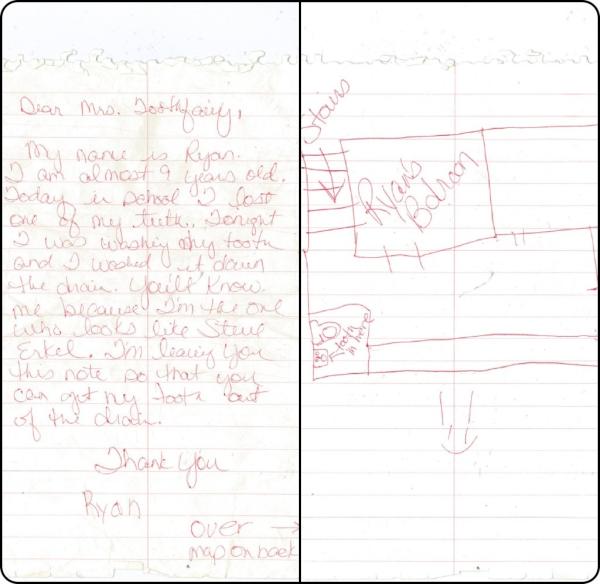 Dear Mrs. Toothfairy,
My name is Ryan.
I am almost 9 years old.
Today in school I lost
one of my teeth. Tonight
I was washing my tooth
and I washed it down
the drain. You'll know
me because I'm the one
who looks like Steve
Erkel. I'm leaving you
this note so that you
can get my tooth out
of the drain.
Thank you
Ryan
over →
map on back
Stairs
Ryan's
Bedroom
tooth
in here